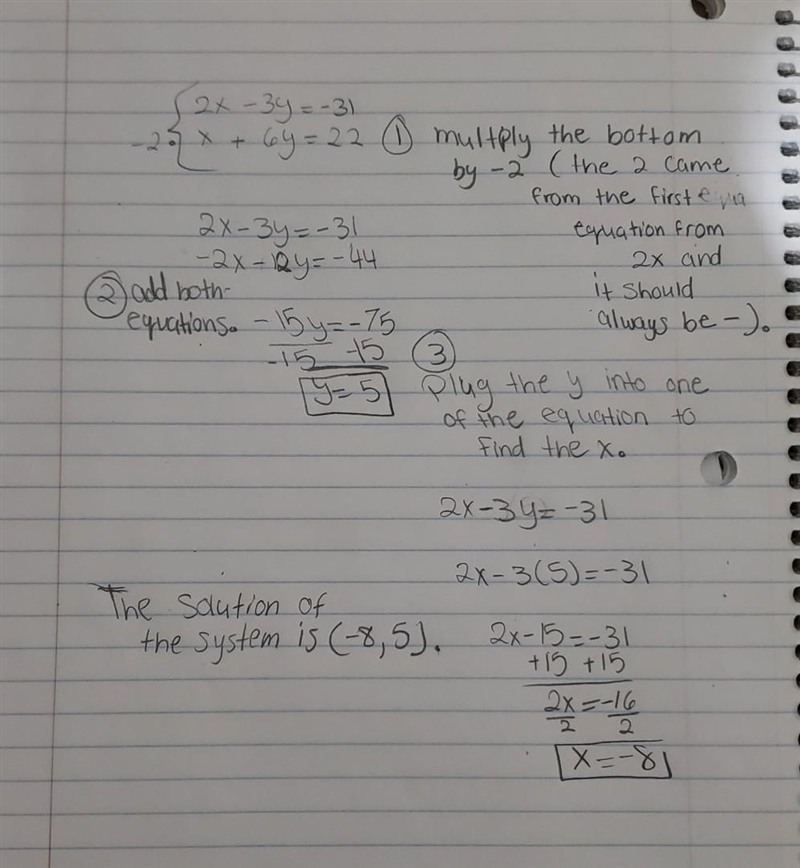 2x - 3y = -31
-2• x + 6y = 22
① multply the bottom
by -2 (the 2 came
from the first
equation from
2x and
it should
always be -).
2x - 3y = -31
-2x - 12y = -44
② add both
equations.
-15y = -75
-15 -15
y = 5
③
Plug the y into one
of the equation to
find the x.
2x - 3y = -31
2x - 3(5) = -31
2x - 15 = -31
+15 +15
2x = -16
2 2
x = -8
The solution of
the system is (-8, 5).